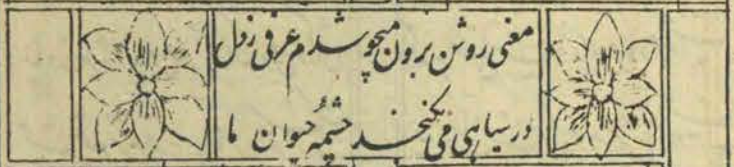 معنی روشن برون میجوشدم عرفی زدل
در سیاهی می نگنجد چشمهٔ حیوان ما